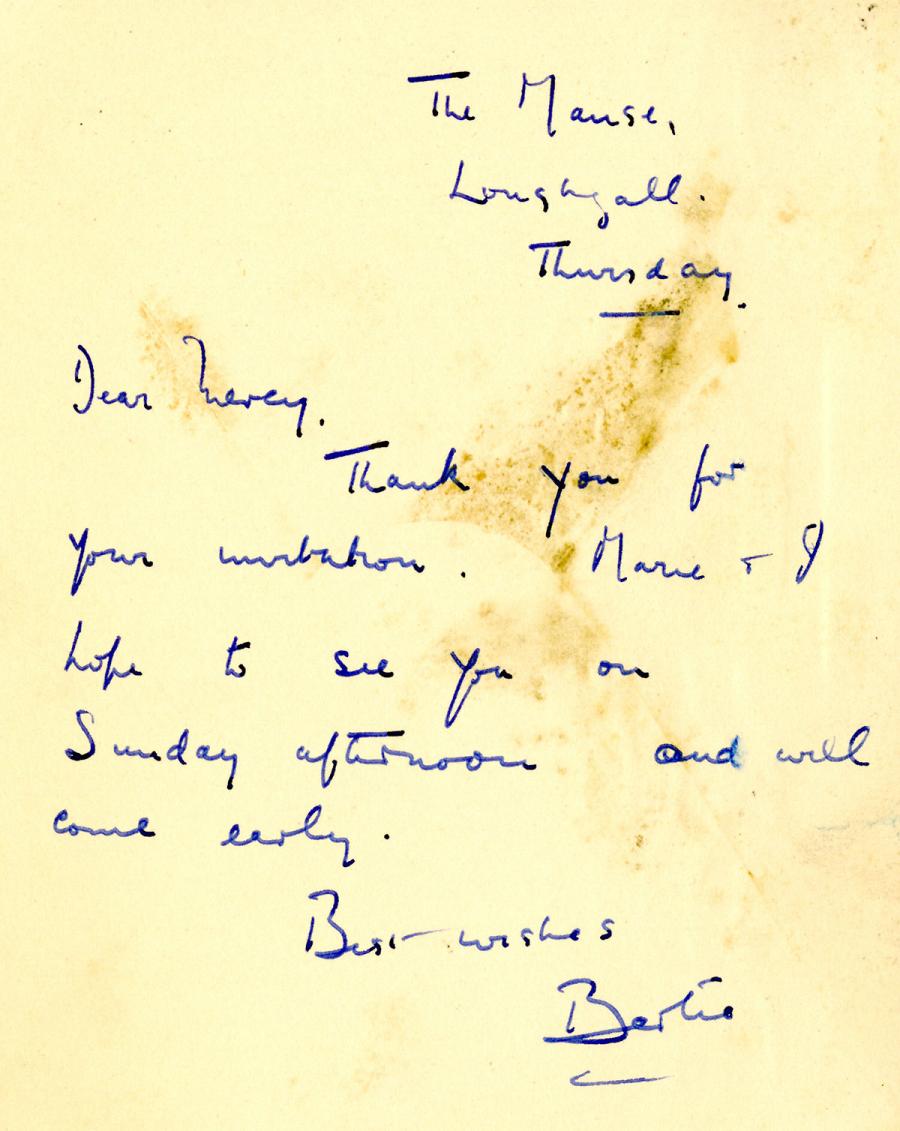 The Manse,
Loughgall.
Thursday.
Dear Mercy.
Thank you for
your invitation. Marie + I
hope to see you on
Sunday afternoon and will
come early.
Best wishes
Bertie